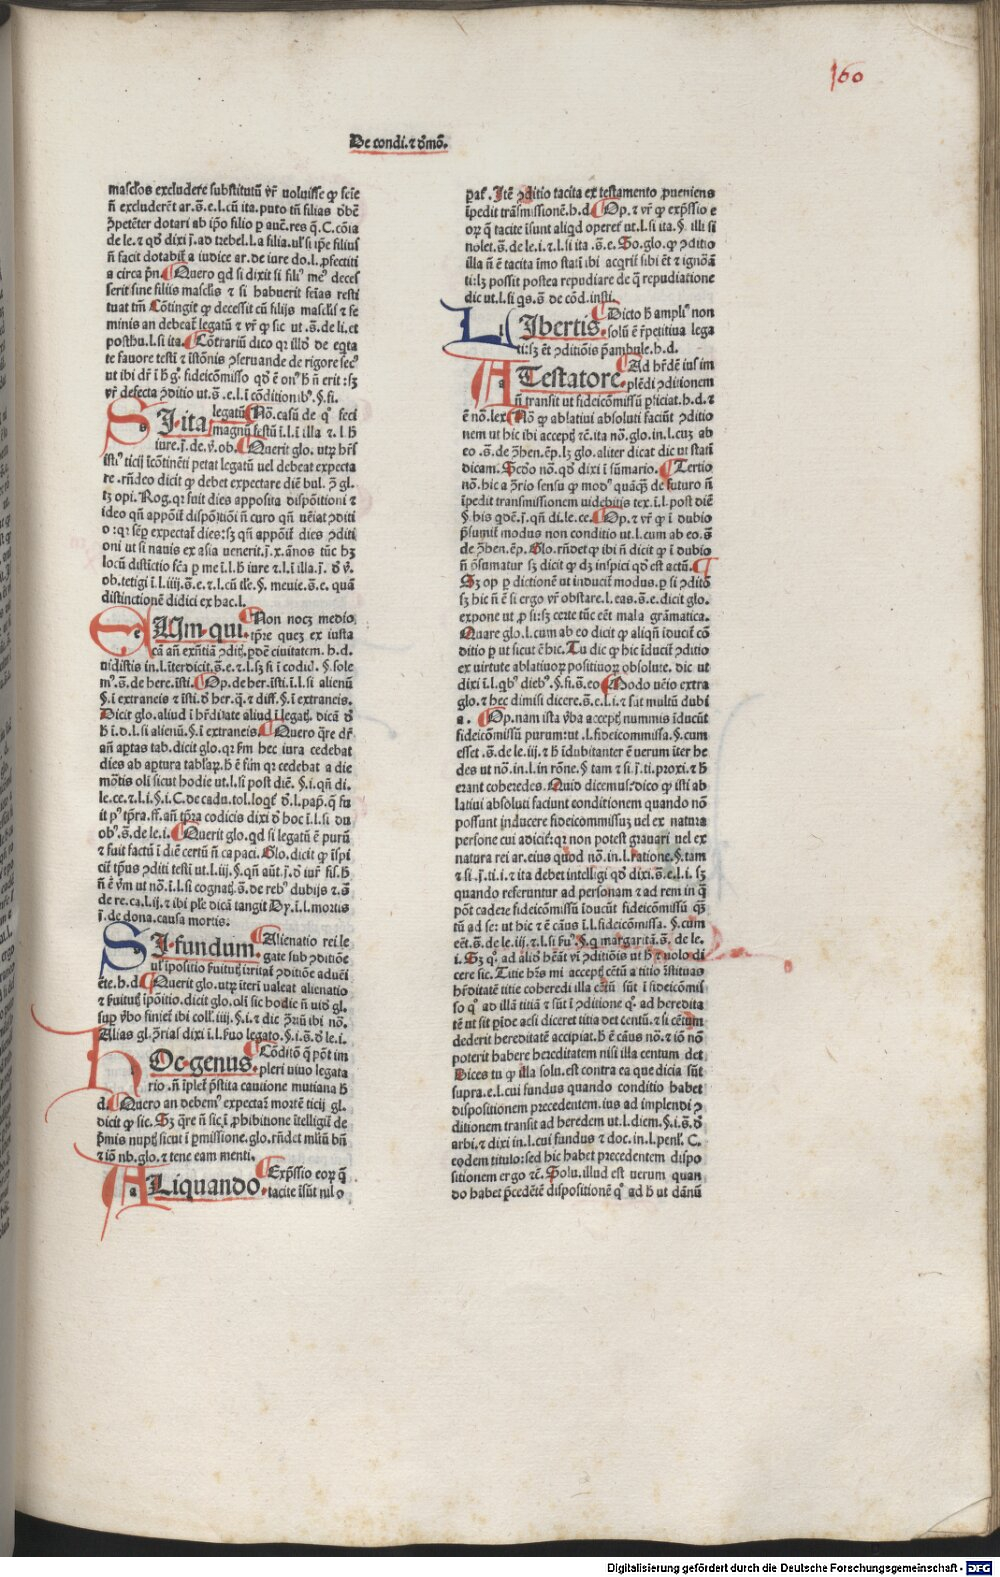 160
De condi. ⁊ dͤmō.
masclos excludere substitutū vr̄ uoluisse ꝙ scīe
n̄ excluderēt ar. s̄. e. l. cū ita. puto tn̄ filias dͤbēt
ꝯpetēter dotari ab ip̄o filio ꝑ auct. res q̄. C. cōia
de le. ⁊ qd̄ dixi j̄. ad trebel. l. a filia. ul̓ si ip̄e filius
n̄ facit dotabit̄ a iudice ar. de iure do. l. ꝓfectiti
a circa pn̄. Quero qd si dixit si fili⁹ me⁹ deces
serit sine filiis masclis ⁊ si habuerit feīas resti
tuat tm̄ Cōtingit ꝙ decessit cū filijs masclis ⁊ fe
minis an debeat̄ legatū ⁊ vr̄ ꝙ sic ut .s̄. de li. et
posthu. l. si ita. Cōtrariū dico qꝛ illd̄ de eq̄ta
te fauore testi ⁊ īstōnis ꝯseruande de rigore sec⁹
ut ibi dr̄ i h̄ g̊. fideicōmisso qd̄ ē on⁹ h̄ n̄ erit : sꝫ
vr̄ defecta ꝯditio ut .s̄. e. l. ī cōditionib⁹. §. fi.
SI·ita legatū Nō. casū de q̊ feci
magnū festū i. l. i illa ⁊ l. h̄
iure. j̄. de v̄. ob. Querit glo. utꝝ hr̄s
isti⁹ ticij īcōtinēti petat legatū uel debeat expecta
re . rn̄deo dicit ꝙ debet expectare diē bul. ꝯ gl.
tꝫ opi. Rog. qꝛ fuit dies apposita dispōitioni ⁊
ideo qn̄ appōit̄ dispōitiōi n̄ curo qn̄ uēiat ꝯditi
o : qꝛ sēꝑ expectat̄ dies : sꝫ qn̄ appōit̄ dies ꝯditi
oni ut si nauis ex asia uenerit. j̄. x. ānos tūc hꝫ
locū distīctio sc̄a ꝑ me i. l. h̄ iure ⁊ l. i illa. j̄. dͤ v̄.
ob. tetigi i. l. iiij. s̄. e. ⁊ l. cū tl̓e. §. meuie. s̄. e. quā
distinctionē didici ex hac. l.
QUm·qui· Non nocꝫ medio
tp̄re quez ex iusta
cā añ exn̄tiā ꝯditꝫ. pdē ciuitatem. h. d.
uidistis in. l. īterdicit. s̄. e. ⁊ l. sꝫ si i codicl̓. §. sole
m⁹. s̄. de here. īsti. Op. de her. īsti. i. l. si alienū
§. i extraneis ⁊ īsti. dͤ her. q̄. ⁊ diff. §. i extraneis.
Dicit glo. aliud i hr̄ditate aliud i legatꝫ. dicā dͤ
h̄ i. d. l. si alienū. §. i extraneis. Quero q̄re dr̄
an̄ aꝑtas tab. dicit glo. qꝛ ẜm hec iura cedebat
dies ab aꝑtura tabl̓aꝝ. h̄ ē sim̄ qꝛ cedebat a die
mōtis oli sicut hodie ut. l. si post diē. §. i. qn̄ di.
le. ce. ⁊ l. i. §. i. C. de cadu. tol. loq̄ł dͤ. l. pap. q̄ fu
it p⁹ tp̄ra. ff. añ tp̄ra codicis dixi dͤ hoc i. l. si du
ob⁹. s̄. de le. i. Querit glo. qd si legatū ē purū
⁊ fuit factū i diē certū n̄ capaci. Glo. dicit ꝙ īspi
cit̄ tp̄us ꝯditi testi ut. l. iij. §. qn̄ aūt. j̄. dͤ iur̄. fis. h̄
n̄ ē v̄m ut nō. i. l. si cognatꝫ. s̄. de reb⁹ dubijs ⁊. s̄.
de re. ca. l. ij. ⁊ ibi pl̓e dicā tangit Dy. i. l. mortis
j̄. de dona. causa mortis.
SI·fundum· Alienatio rei le
gate sub ꝯditiōe
ul̓ īpositio s̄uitutꝫ irritat̄ ꝯditiōe aduēi
ēte. h. d. Querit glo. utꝝ iteꝝ ualeat alienatio
⁊ s̄uitutꝫ ipōitio. dicit glo. oli sic hodie n̄ uid̄ gl.
suꝑ v̄bo siniet̄ ibi coll̓. iiij. §. i. ⁊ dic ꝓriū ibi nō.
Alias gl. ꝯrias dixi i. l. s̄uo legato. §. i. s̄. dͤ le. i.
HOc·genus· Cōditō q̄ pōt im
pleri uiuo legata
rio. n̄ īplet̄ p̄stita cautione mutiana h̄
d. Quero an debem⁹ expectar̄ mortē ticij gl.
dicit ꝙ sic. Sꝫ q̄re n̄ sic i ꝓhibitione ītelligit̄ de
p̄mis nuptꝫ sicut i ꝑmissione. glo. rn̄det ml̓tū bn̄
⁊ iō nb. glo. ⁊ tene eam menti.
ALiquando· Exp̄ssio eoꝝ q̄
tacite īsūt nil ꝯ
ꝑat̄. Itē ꝯditio tacita ex testamento ꝓueniens
īpedit trāsmissionē. h. d. Op. ⁊ vr̄ ꝙ exp̄ssio e
oꝝ q̄ tacite īsunt aliqd operet̄ ut. l. si ita. §. illi si
nolet. s̄. de le. i. ⁊ l. si ita .s̄. e. So. glo. ꝙ ꝯditio
illa n̄ ē tacita īmo stati ibi acqrit̄ sibi ēt ⁊ ignorā
ti : lꝫ possit postea repudiare de q̄ repudiatione
dic ut. l. si qs. s̄. de cōd. insti.
LIbertis· Dicto h̄ ampli⁹ non
solū ē r̄petitiua lega
ti : sꝫ ēt ꝯditiōis p̄ambule. h. d.
A Testatore· Ad hr̄dē ius im
plēdi ꝯditionem
n̄ transit ut fideicōmissū ꝑficiat. h. d. ⁊
ē nō. lex Nō ꝙ ablatiui absoluti faciūt ꝯditio
nem ut hic ibi acceptꝫ ⁊c̄. ita nō. glo. in. l. cuꝫ ab
eo .s̄. de ꝯhen. ēp. lꝫ glo. aliter dicat dic ut statī
dicam. Scdo nō. qd̄ dixi i sūmario. Tertio
nō. hic a ꝯrio sensu ꝙ mod⁹ quācꝫ de futuro n̄
īpedit transmissionem uidebitis tex. i. l. post diē
§. his qdē. j̄. qn̄ di. le. ce. Op. ⁊ vr̄ ꝙ i dubio
p̄sumit̄ modus non conditio ut. l. cum ab eo. s̄
de ꝯhen. ēp. Glo. rn̄det ꝙ ibi n̄ dicit ꝙ i dubio
n̄ p̄sumatur sꝫ dicit ꝙ dꝫ inspici qd̄ est actū.
Sꝫ op ꝑ dictionē ut inducit̄ modus. ꝑ si ꝯditō
sꝫ hic n̄ ē si ergo vr̄ obstare. l. eas. s̄. e dicit glo.
expone ut ꝓ si : sꝫ certe tūc eēt mala grāmatica.
Quare glo. l. cum ab eo dicit ꝙ aliqn̄ īducit̄ cō
ditio ꝑ ut sicut ē hic. Tu dic ꝙ hic īducit̄ ꝯditio
ex virtute ablatiuoꝝ positiuoꝝ absolute. dic ut
dixi i. l. qb⁹ dieb⁹. §. fi. s̄. eo Modo uēio extra
glo. ⁊ hec dimisi dicere. s̄. e. l. i. ⁊ fat̄ multū dubi
a . Op. nam ista v̄ba acceptꝫ nummis īducūt
fideicōmissū purum : ut .l. fideicommissa. §. cum
esset .s̄. de le. iij. ⁊ h̄ īdubitanter ē uerum iter he
des ut nō. in. l. in rōne. §. tam ⁊ si. j̄. ti. proxi. ⁊ h̄
erant coheredes. Quid dicemus : dico ꝙ isti ab
latiui absoluti faciunt conditionem quando nō
possunt inducere fideicommissuꝫ uel ex natura
persone cui adicit̄ : qꝛ non potest grauari uel ex
natura rei ar. eius quod nō. in. l. ratione. §. tam
⁊ si . j̄. ti. i. ⁊ ita debet intelligi qd̄ dixi. s̄. e. l. i. sꝫ
quando referuntur ad personam ⁊ ad rem in q̄
pōt cadere fideicōmissū īducūt fideicōmissū q̄sꝫ
tū ad se : ut hic ⁊ ē cāus i. l. fideicōmissa. §. cum
eēt. s̄. de le. iij. ⁊ l. si ẜu⁹. §. q̄ margaritā. s̄. de le.
i. Sꝫ q̊. ad aliōs hēant vi ꝯditiōis ut h̄ ⁊ uolo di
cere sic. Titie hr̄s mi acceptꝫ cētū a titio īstituas
hr̄ditatē titie coheredi illa cētū sūt i fideicōmis
so q̊ ad illā titiā ⁊ sūt i ꝯditione q̊. ad heredita
tē ut sit p̄ide acsi diceret titia det centū. ⁊ si cētum
dederit hereditatē accipiat. h̄ ē cāus nō. ⁊ iō nō
poterit habere hereditatem nisi illa centum det
Dices tu ꝙ illa solu. est contra ea que dicta sūt
supra. e. l. cui fundus quando conditio habet
dispositionem precedentem. ius ad implendi ꝯ
ditionem transit ad heredem ut. l. diem. §. i. s̄. dͤ
arbi. ⁊ dixi in. l. cui fundus ⁊ doc. in. l. pens̄. C.
eodem titulo : sed hic habet precedentem dispo
sitionem ergo ⁊c̄. Solu. illud est uerum quan
do habet p̄cedētē dispositionē q̊ ad h̄ ut dānū
Digitalisierung gefördert durch die Deutsche Forschungsgemeinschaft - DFG